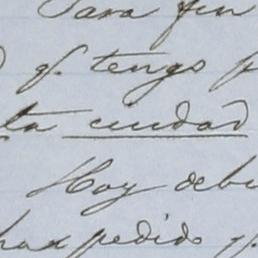 Para fin
q. tengo
ta ciudad
Hoy debi
han pedido q.